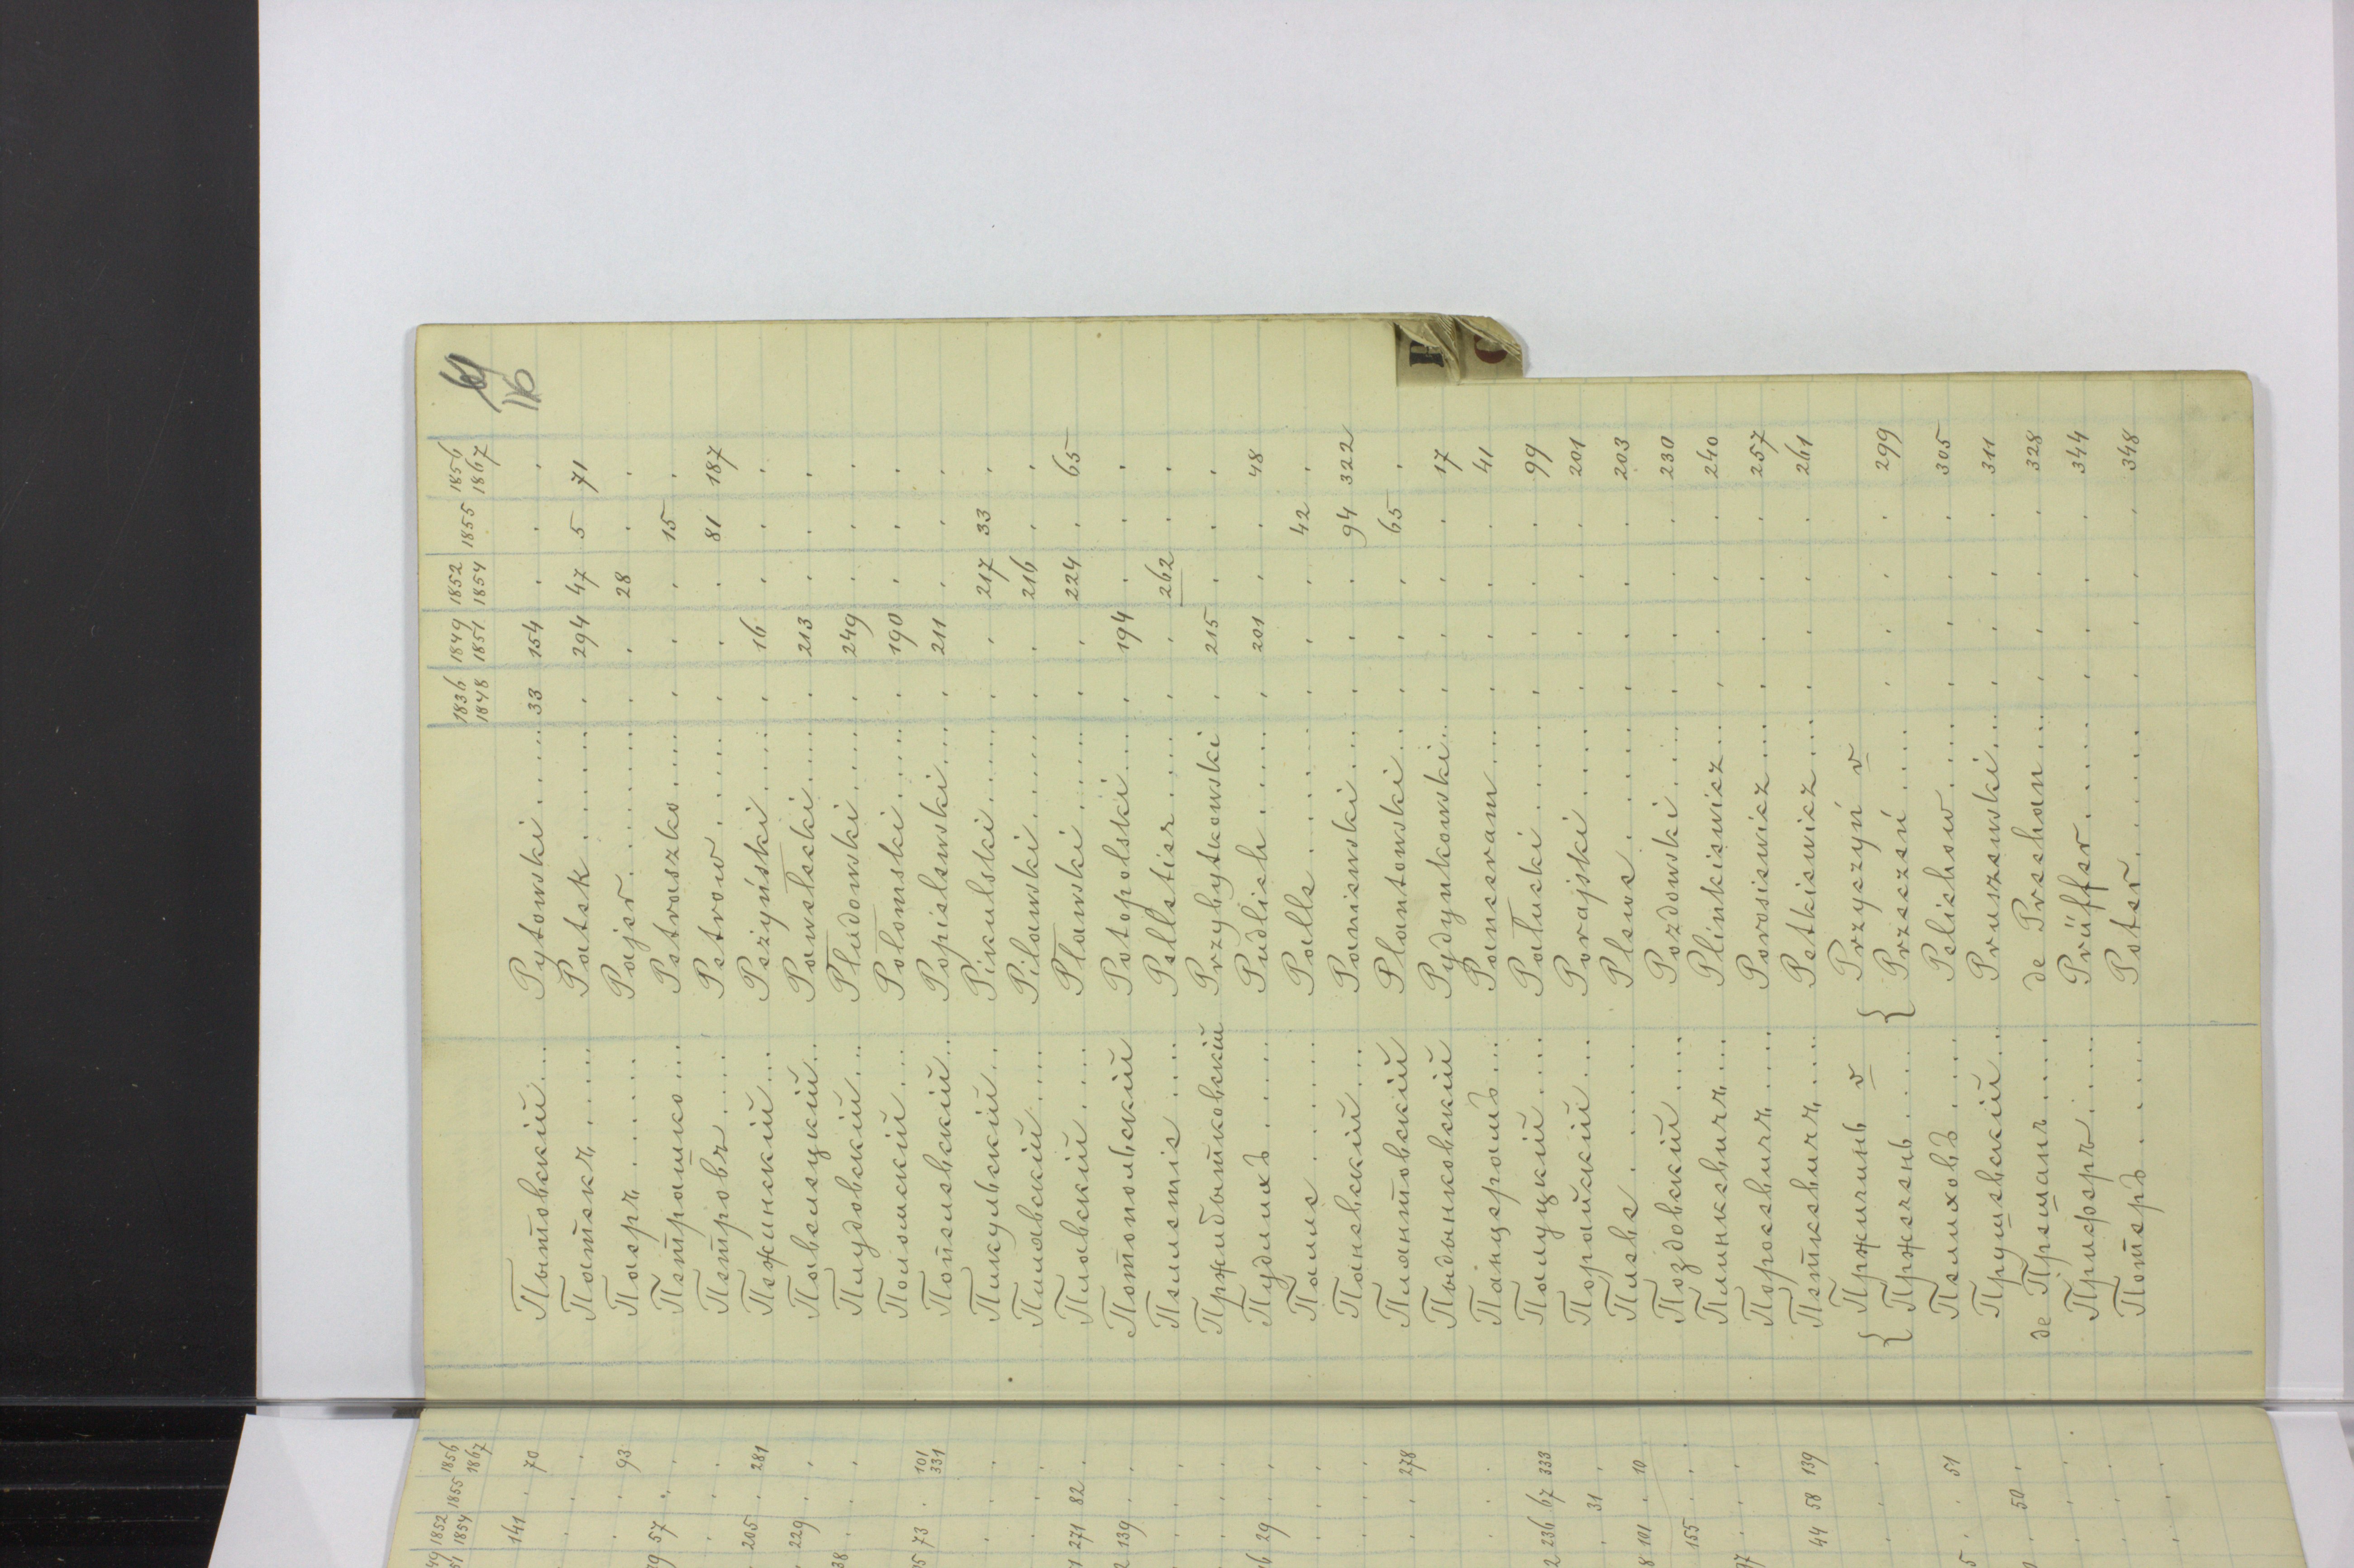 116
1836 1849 1852 1855 1856
1848 1851 1854 1867
Пытовскій.... Pytowski..... 33 154 . . .
Патекъ..... Patek...... . 294 47 5 71
Паеръ...... Pajer....... . . 28 . .
Петрашко.... Petraszko.... . . . 15 .
Петровъ.... Petrow..... . . . 81 187
Пежинскій... Peżyński..... . 16 . . .
Павелецкій... Pawełecki..... . 213 . . .
Плудовскій... Płudowski.... . 249 . . .
Поломскій.... Połomski..... . 190 . . .
Попелевскій... Popielewski.... . 211 . . .
Пикульскій... Pikulski...... . . 217 33 .
Пилавскій.... Pilawski...... . . 216 . .
Плавскій..... Pławski...... . . 224 . 65
Потопольскій Potopolski.... . 194 . . .
Пелетіе..... Pelletier..... . . 262 . .
Пржибытковскій Przybytkowski . 215 . . .
Пудлихъ..... Pudlich..... . 201 . . 48
Палле...... Palle....... . . . 42 .
Паневскій.... Paniewski.... . . . 94 322
Плантовскій Plantowski.. . . . 65 .
Пыдынковскій Pydynkowski.. . . . . 17
Панцерамъ... Panceram.... . . . . 41
Палуцкій..... Pałucki...... . . . . 99
Порайскій.... Porajski..... . . . . 201
Плеве....... Plewe...... . . . . 203
Поздовскій.... Pozdowski..... . . . . 230
Плинкевичъ.... Plinkiewicz... . . . . 240
Пороевичъ.... Porosiewicz.... . . . . 257
Петкевичъ.... Petkiewicz.... . . . . 261
{ Пржичинь v { Przyczyń v
{ Пржечень.... { Przeczeń.... . . . . 299
Пелиховъ.... Pelichow..... . . . . 305
Прушевскій.. Pruszewski... . . . . 311
de Прешанъ.... de Preshan... . . . . 328
Приферъ..... Prüffer..... . . . . 344
Потеръ...... Poter....... . . . . 348
1852 1855 1856
1854 1867
141 . 70
. . 93
57 .
205 . 281
229 . .
73 . 101
331
271 82 .
139 . .
29 . .
. . 278
236 67 333
. 31 .
101 . 10
155 . .
44 58 139
. . 51
. 50 .